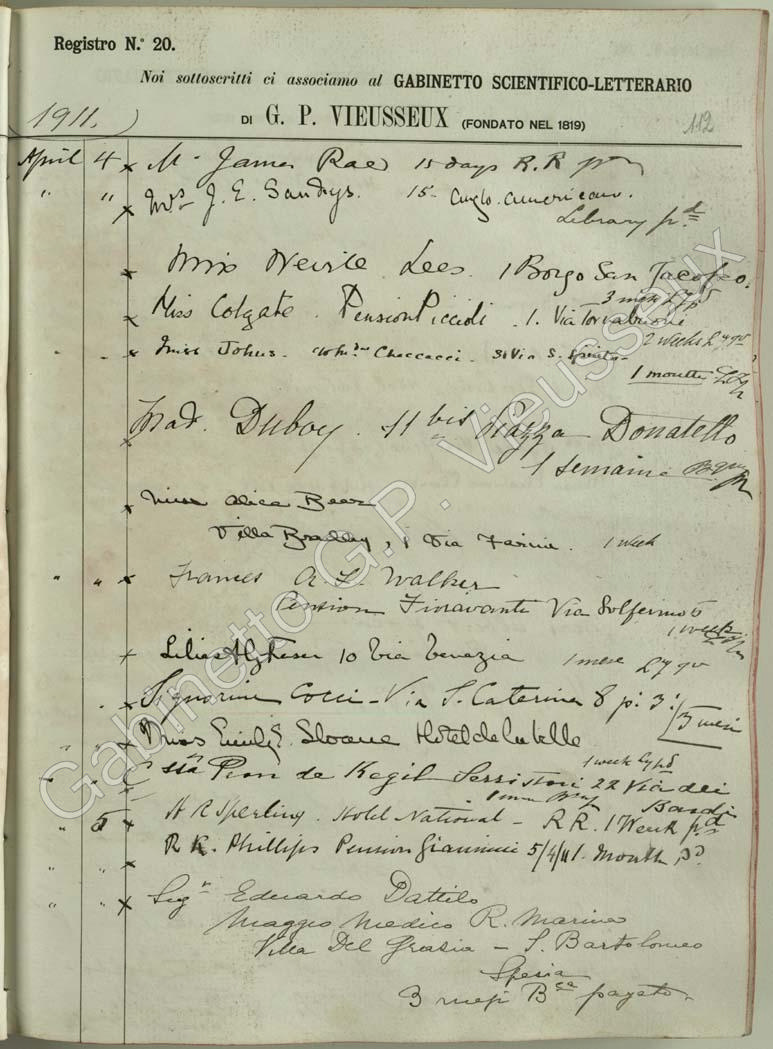 Registro N.° 20.
Noi sottoscritti ci associamo al GABINETTO SCIENTIFICO-LETTERARIO
DI G. P. VIEUSSEUX (FONDATO NEL 1819)
1911. 112
April 4 x Mr James Rae 15 days R.R
" " x Mrs J. E. Sandys. 15- Anglo-American.
Library pd
x Miss Nevile Lees 1 Borgo San Jacopo.
3 mesi
x Miss Colgate. Pension Piccioli. 1. Via Tornabuoni
2 weeks
" x Miss Johns. Checcacci. Via S. Spirito
1 month
x Mad. Duboy. 11 bis Piazza Donatello
1 semaine
x Miss Alice Beer
Villa Bradley, 1 Via Farini. 1 week
" " x Frances A. L. Walker
Pension Fioravanti Via Solferino 6
1 week
x 10 Via Venezia 1 mese
x Signorine Cocci - Via S. Caterina 8 p: 3:
3 mesi
" " x Miss Emily E. Sloane Hotel de la Ville
1 week
" " de Kegel Serristori 22 Via dei
Bardi
" 5 x H R Sperling. Hotel National - R R. 1 Week pd
x R K. Phillips Pension Giannini 5/4/11 1. Month pd
" " x Sigr Eduardo Dattilo
Maggio Medico R. Marina
Villa Del Grazia - S. Bartolomeo
Spezia
3 mesi pagato
Gabinetto G.P. Vieusseux